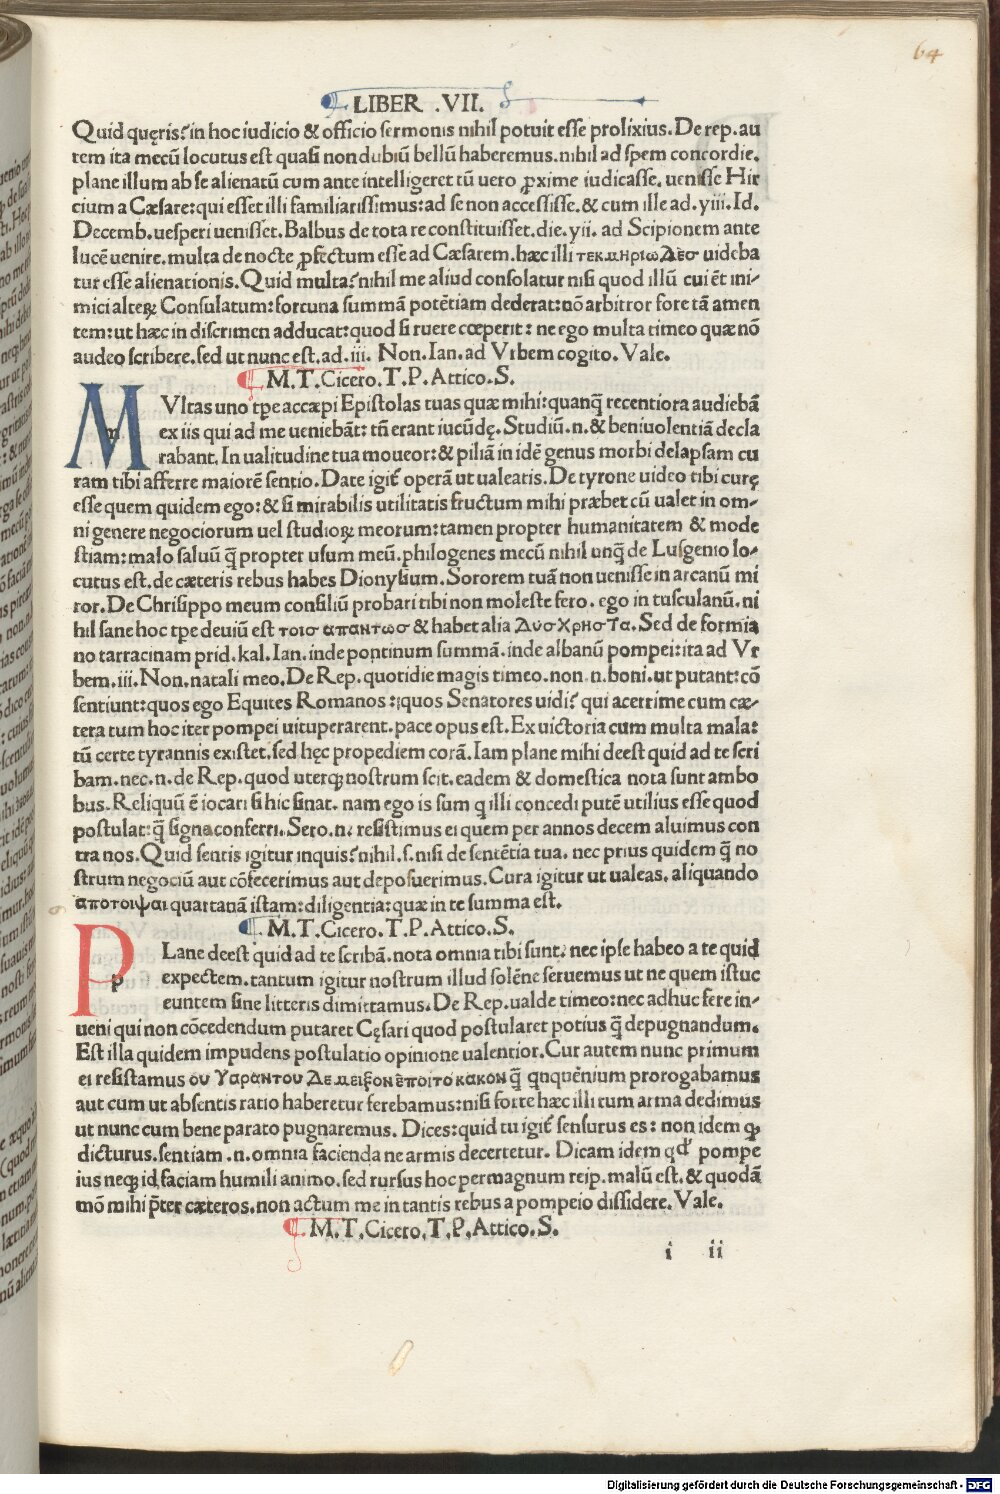 64
LIBER .VII.
Quid quęris? in hoc iudicio & officio sermonis nihil potuit esse prolixius. De rep. au
tem ita mecū locutus est quasi non dubiū bellū haberemus. nihil ad spem concordie.
plane illum ab se alienatū cum ante intelligeret tū uero ꝓxime iudicasse. uenisse Hir
cium a Cæsare: qui esset illi familiarissimus: ad se non accessisse. & cum ille ad. yiii. Id.
Decemb. uesperi uenisset. Balbus de tota re constituisset. die. yii. ad Scipionem ante
lucē uenire. multa de nocte ꝓfectum esse ad Cæsarem. hæc illi τεκμηριωΔεσ uideba
tur esse alienationis. Quid multa? nihil me aliud consolatur nisi quod illū cui ēt ini-
mici alteꝝ Consulatum: fortuna summā potētiam dederat: nō arbitror fore tā amen
tem: ut hæc in discrimen adducat: quod si ruere cœperit: ne ego multa timeo quæ nō
audeo scribere. sed ut nunc est. ad. iii. Non. Ian. ad Vrbem cogito. Vale.
M. T. Cicero. T. P. Attico. S.
MVltas uno tꝑe accæpi Epistolas tuas quæ mihi: quanq̄ recentiora audiebā
ex iis qui ad me ueniebāt: tn̄ erant iucūdę. Studiū. n. & beniuolentiā decla
rabant. In ualitudine tua moueor: & piliā in idē genus morbi delapsam cu
ram tibi afferre maiorē sentio. Date igit᷑ operā ut ualeatis. De tyrone uideo tibi curę
esse quem quidem ego: & si mirabilis utilitatis fructum mihi præbet cū ualet in om-
ni genere negociorum uel studioꝝ meorum: tamen propter humanitatem & mode
stiam: malo saluū q̄ propter usum meū. philogenes mecū nihil unq̄ de Lusgenio lo-
cutus est. de cæteris rebus habes Dionysium. Sororem tuā non uenisse in arcanū mi
ror. De Chrisippo meum consiliū probari tibi non moleste fero. ego in tusculanū. ni
hil sane hoc tꝑe deuiū est τοισ απαντωσ & habet alia ΔυσΧρησΤα. Sed de formia
no tarracinam prid. kal. Ian. inde pontinum summā. inde albanū pompei: ita ad Vr
bem. iii. Non. natali meo. De Rep. quotidie magis timeo. non. n. boni. ut putant: cō
sentiunt: quos ego Equites Romanos: quos Senatores uidi? qui acerrime cum cæ-
tera tum hoc iter pompei uituperarent. pace opus est. Ex uictoria cum multa mala:
tū certe tyrannis existet. sed hęc propediem corā. Iam plane mihi deest quid ad te scri
bam. nec. n. de Rep. quod uterq; nostrum scit. eadem & domestica nota sunt ambo
bus. Reliquū ē iocari si hic sinat. nam ego is sum q illi concedi putē utilius esse quod
postulat: q̄ signa conferri. Sero. n. resistimus ei quem per annos decem aluimus con
tra nos. Quid sentis igitur inquis? nihil. s. nisi de sentētia tua. nec prius quidem q̄ no
strum negociū aut cōfecerimus aut deposuerimus. Cura igitur ut ualeas. aliquando
αποτοιψαι quartanā istam: diligentia: quæ in te summa est.
M. T. Cicero. T. P. Attico. S.
PLane deest quid ad te scribā. nota omnia tibi sunt: nec ipse habeo a te quid
expectem. tantum igitur nostrum illud solēne seruemus ut ne quem istuc
euntem sine litteris dimittamus. De Rep. ualde timeo: nec adhuc fere in-
ueni qui non cōcedendum putaret Cęsari quod postularet potius q̄ depugnandum.
Est illa quidem impudens postulatio opinione ualentior. Cur autem nunc primum
ei resistamus ου Υαραντου Δεμειξον εποιτο κακον q̄ qnquēnium prorogabamus
aut cum ut absentis ratio haberetur ferebamus: nisi forte hæc illi tum arma dedimus
ut nunc cum bene parato pugnaremus. Dices: quid tu igit᷑ sensurus es: non idem qꝫ
dicturus. sentiam. n. omnia facienda ne armis decertetur. Dicam idem qd᷑ pompe
ius neq; id faciam humili animo. sed rursus hoc permagnum reip. malū est. & quodā
mō mihi p̄ter cæteros. non actum me in tantis rebus a pompeio dissidere. Vale.
M. T. Cicero. T. P. Attico. S.
i ii
Digitalisierung gefördert durch die Deutsche Forschungsgemeinschaft - DFG